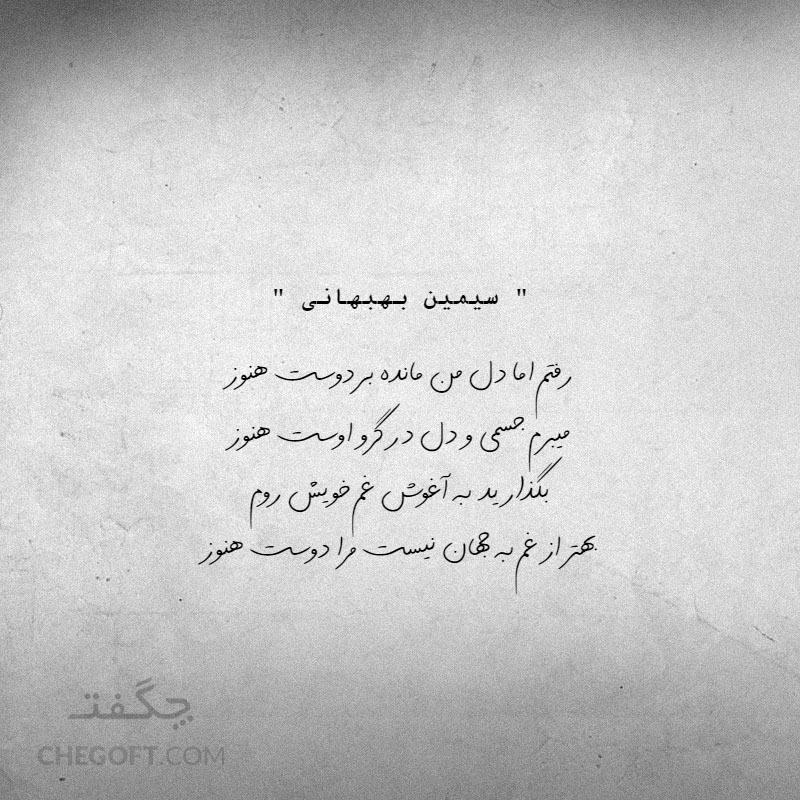 " سیمین بهبهانی "
رفتم اما دل من مانده بر دوست هنوز
میبرم جسمی و دل در گرو اوست هنوز
بگذارید به آغوش غم خویش روم
بهتر از غم به جهان نیست مرا دوست هنوز
چگفت
CHEGOFT.COM